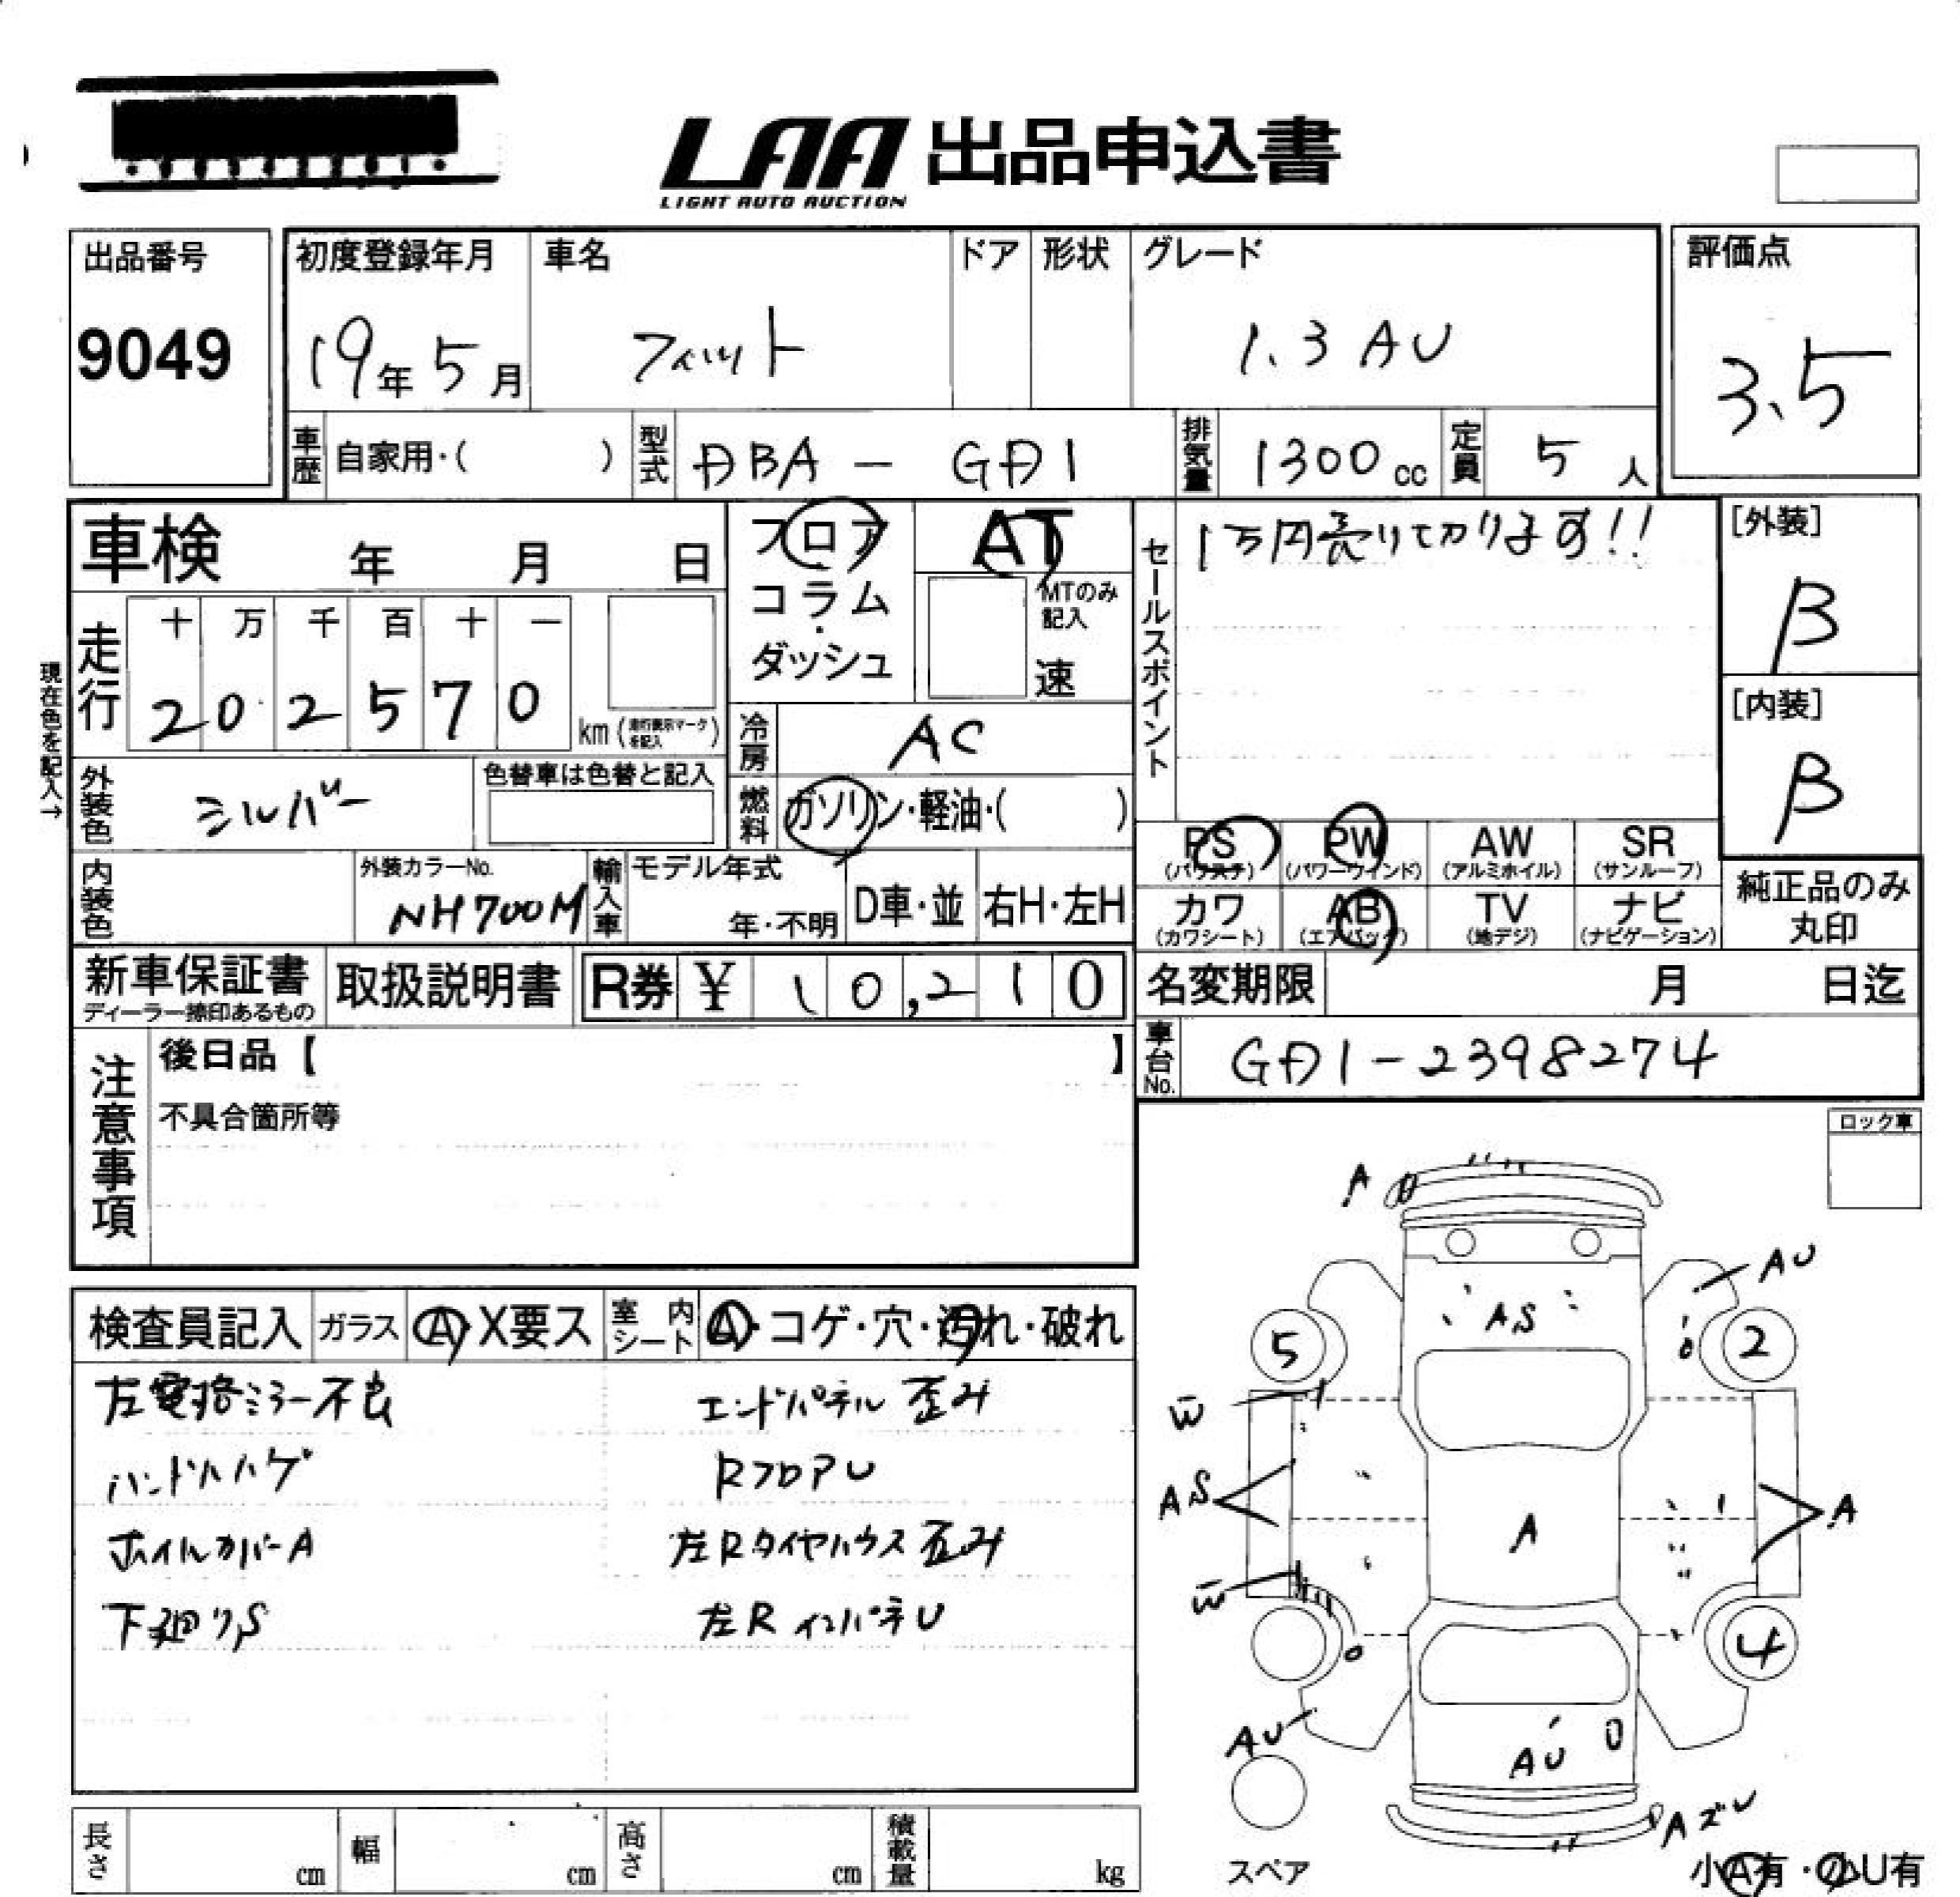 LAA 出品申込書
LIGHT AUTO AUCTION
出品番号
9049
初度登録年月 車名 ドア 形状 グレード
19年5月 フィット 1.3 AU
評価点
3.5
車歴 自家用・( ) 型式 DBA - GD1 排気量 1300 cc 定員 5 人
車検 年 月 日
フロア AT
コラム・ダッシュ
MTのみ記入
速
走行 十 万 千 百 十 一
2 0 2 5 7 0 km (走行表示マークを記入)
現在色を記入→
冷房 AC
外装色 シルバー 色替車は色替と記入
燃料 ガソリン・軽油・( )
内装色 外装カラーNo. NH700M
輸入車 モデル年式 年・不明 D車・並 右H・左H
新車保証書 ディーラー捺印あるもの 取扱説明書 R券 ¥ 10,210
セールスポイント
1万円売りて切ります!!
[外装]
B
[内装]
B
PS PW AW SR
(パワステ) (パワーウインド) (アルミホイル) (サンルーフ)
カワ AB TV ナビ
(カワシート) (エアバッグ) (地デジ) (ナビゲーション)
純正品のみ
丸印
名変期限 月 日迄
車台No. GD1-2398274
注意事項
後日品【 】
不具合箇所等
ロック車
検査員記入 ガラス A・X要ス 室内シート A・コゲ・穴・汚れ・破れ
左電格ミラー不良 エンドパネル歪み
ハンドルハゲ RフロアU
ホイルカバーA 左Rタイヤハウス歪み
下廻りS 左RインパネU
長さ cm 幅 cm 高さ cm 積載量 kg
A
AU
AS
5
2
W
AS
A
A
W
4
AU
AU
AズU
スペア
小A有・小U有